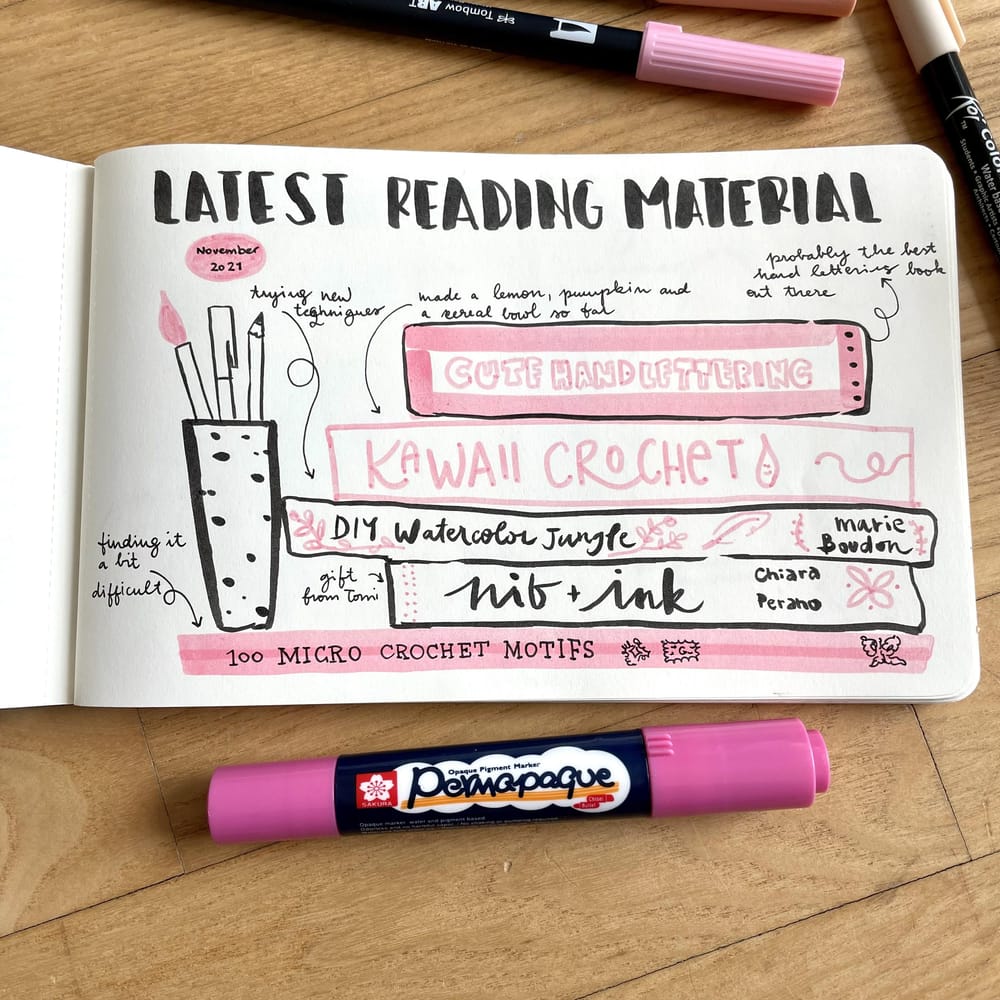 Tombow ART
Koi Color
TM
LATEST READING MATERIAL
November
2021
trying new
techniques
made a lemon, pumpkin and
a cereal bowl so far
probably the best
hand lettering book
out there
CUTE HAND LETTERING
KAWAII CROCHET
DIY Watercolor Jungle
marie
Boudon
finding it
a bit
difficult
gift
from Tomi
nib + ink
Chiara
Perano
100 MICRO CROCHET MOTIFS
Opaque Pigment Marker
SAKURA
Permapaque
Opaque marker, water and pigment based.